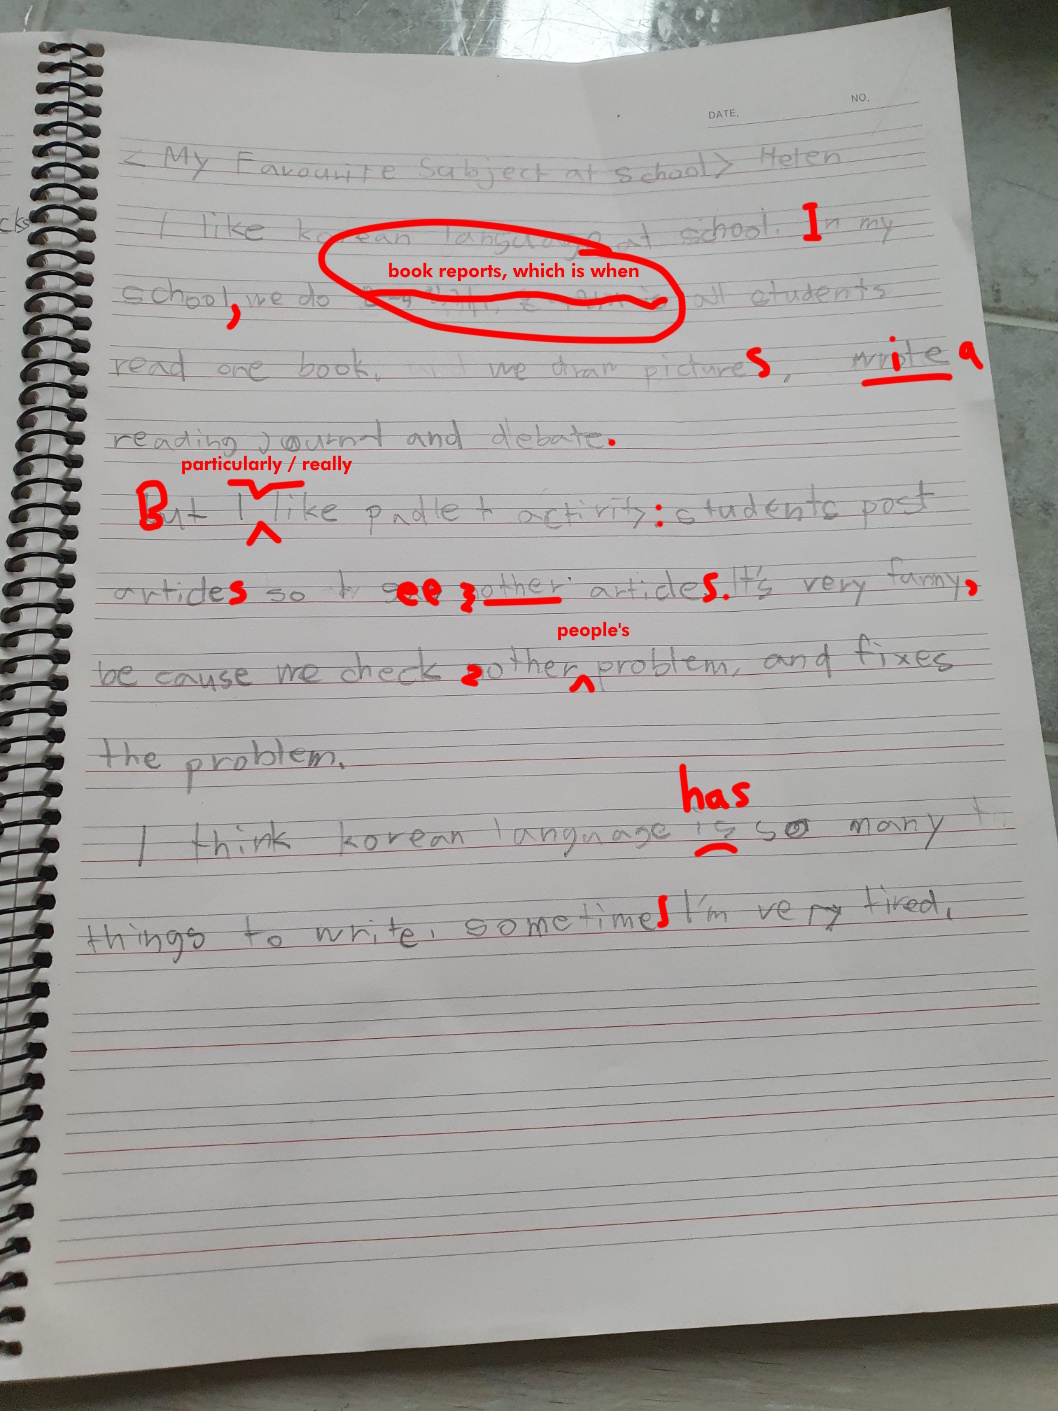 DATE. NO.
< My Favourite Subject at school> Helen
I like korean language at school. In my
book reports, which is when
school, we do all students
read one book. and we draw pictures, write a
reading journal and debate.
particularly / really
But I like padlet activity: students post
articles so to see other articles. It's very funny,
people's
be cause we check other problem, and fixes
the problem.
has
I think korean language is so many t
things to write. sometimes I'm very tired.